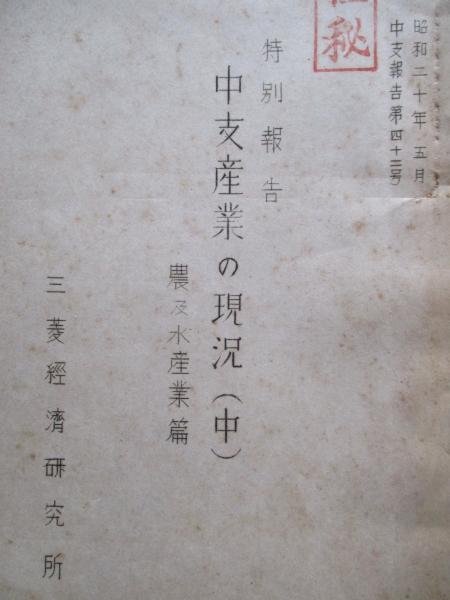 昭和二十年五月
中支報告第四十三号
秘
特別報告
中支産業の現況(中)
農及水産業篇
三菱経済研究所